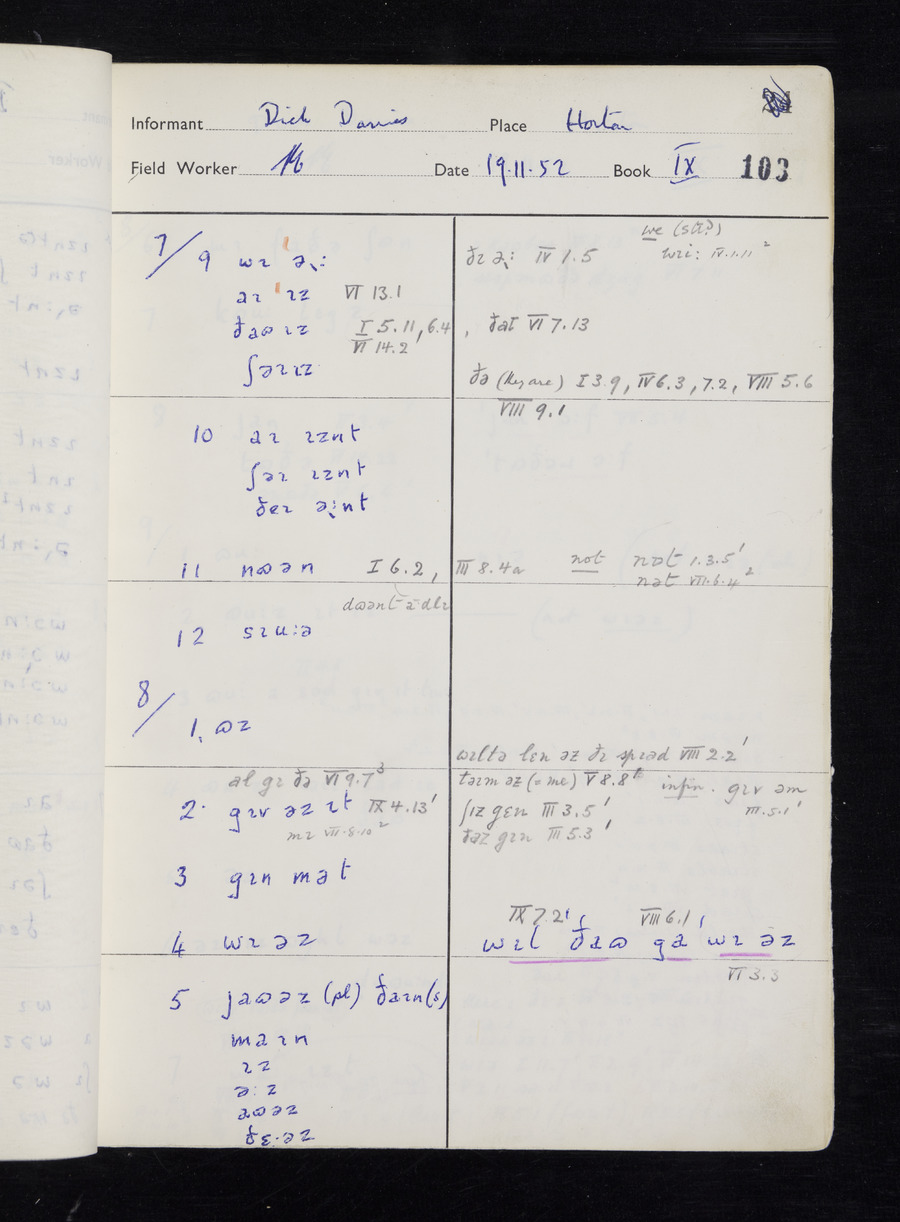 Informant Dick Davies Place Horton
Field Worker Date 19.11.52 Book IX 103
7/
we (sit?)
9 wɪ ə: ðɪ ə: IV 1.5 wɪi: IV.1.11 2
aɪ ɪz VI 13.1
ðaʊ ɪz I 5.11, 6.4, ðat VI 7.13
VI 14.2
ʃəɪ ɪz ðə (they are) I 3.9, IV 6.3, 7.2, VIII 5.6
VIII 9.1
10 aɪ ɪznt
ʃəɪ ɪznt
ðeɪ ə:nt
11 nʊən I 6.2, III 8.4a not nɒt 1.3.5'
nət VII.6.4 2
12 sɪu:ə
8/
1. ʊz
wɪltə lɛn əz ðɪ sprɛd VIII 2.2'
al gɪ ðə VI 9.7 3 taɪm əz (= me) V 8.8' infin. gɪv əm
2. gɪv əz ɪt IX 4.13' ʃɪz gɛn III 3.5' III.5.1'
mɪ VII.8.10 2 ðəz gɪn III 5.3'
3 gɪn mət
IX 7.2' VIII 6.1'
4 wɪ əz wɪl ðaʊ ga wɪ əz
VI 3.3
5 jaʊəz (pl) ðaɪn (s)
maɪn
ɪz
ə:z
aʊəz
ðɛ·əz